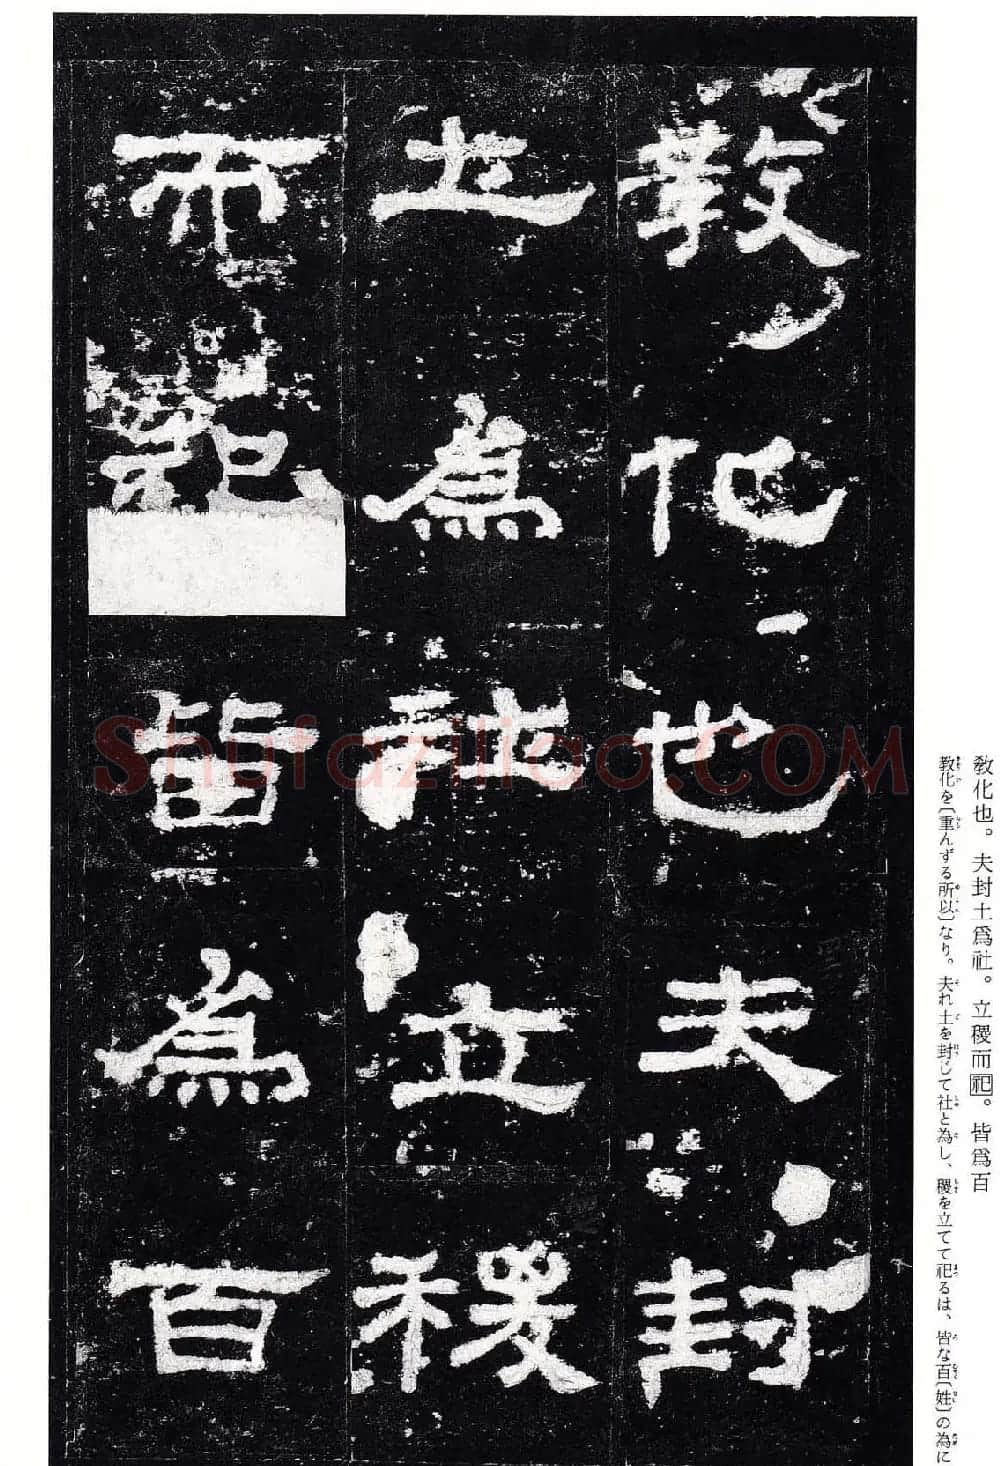 教化也夫封
土為社立稷
而祀皆為百
教化也。夫封土爲社。立稷而祀。皆爲百
教化を〔重んずる所以〕なり。夫れ土を封じて社と為し、稷を立てて祀るは、皆な百〔姓〕の為に
Shufaziliao.COM